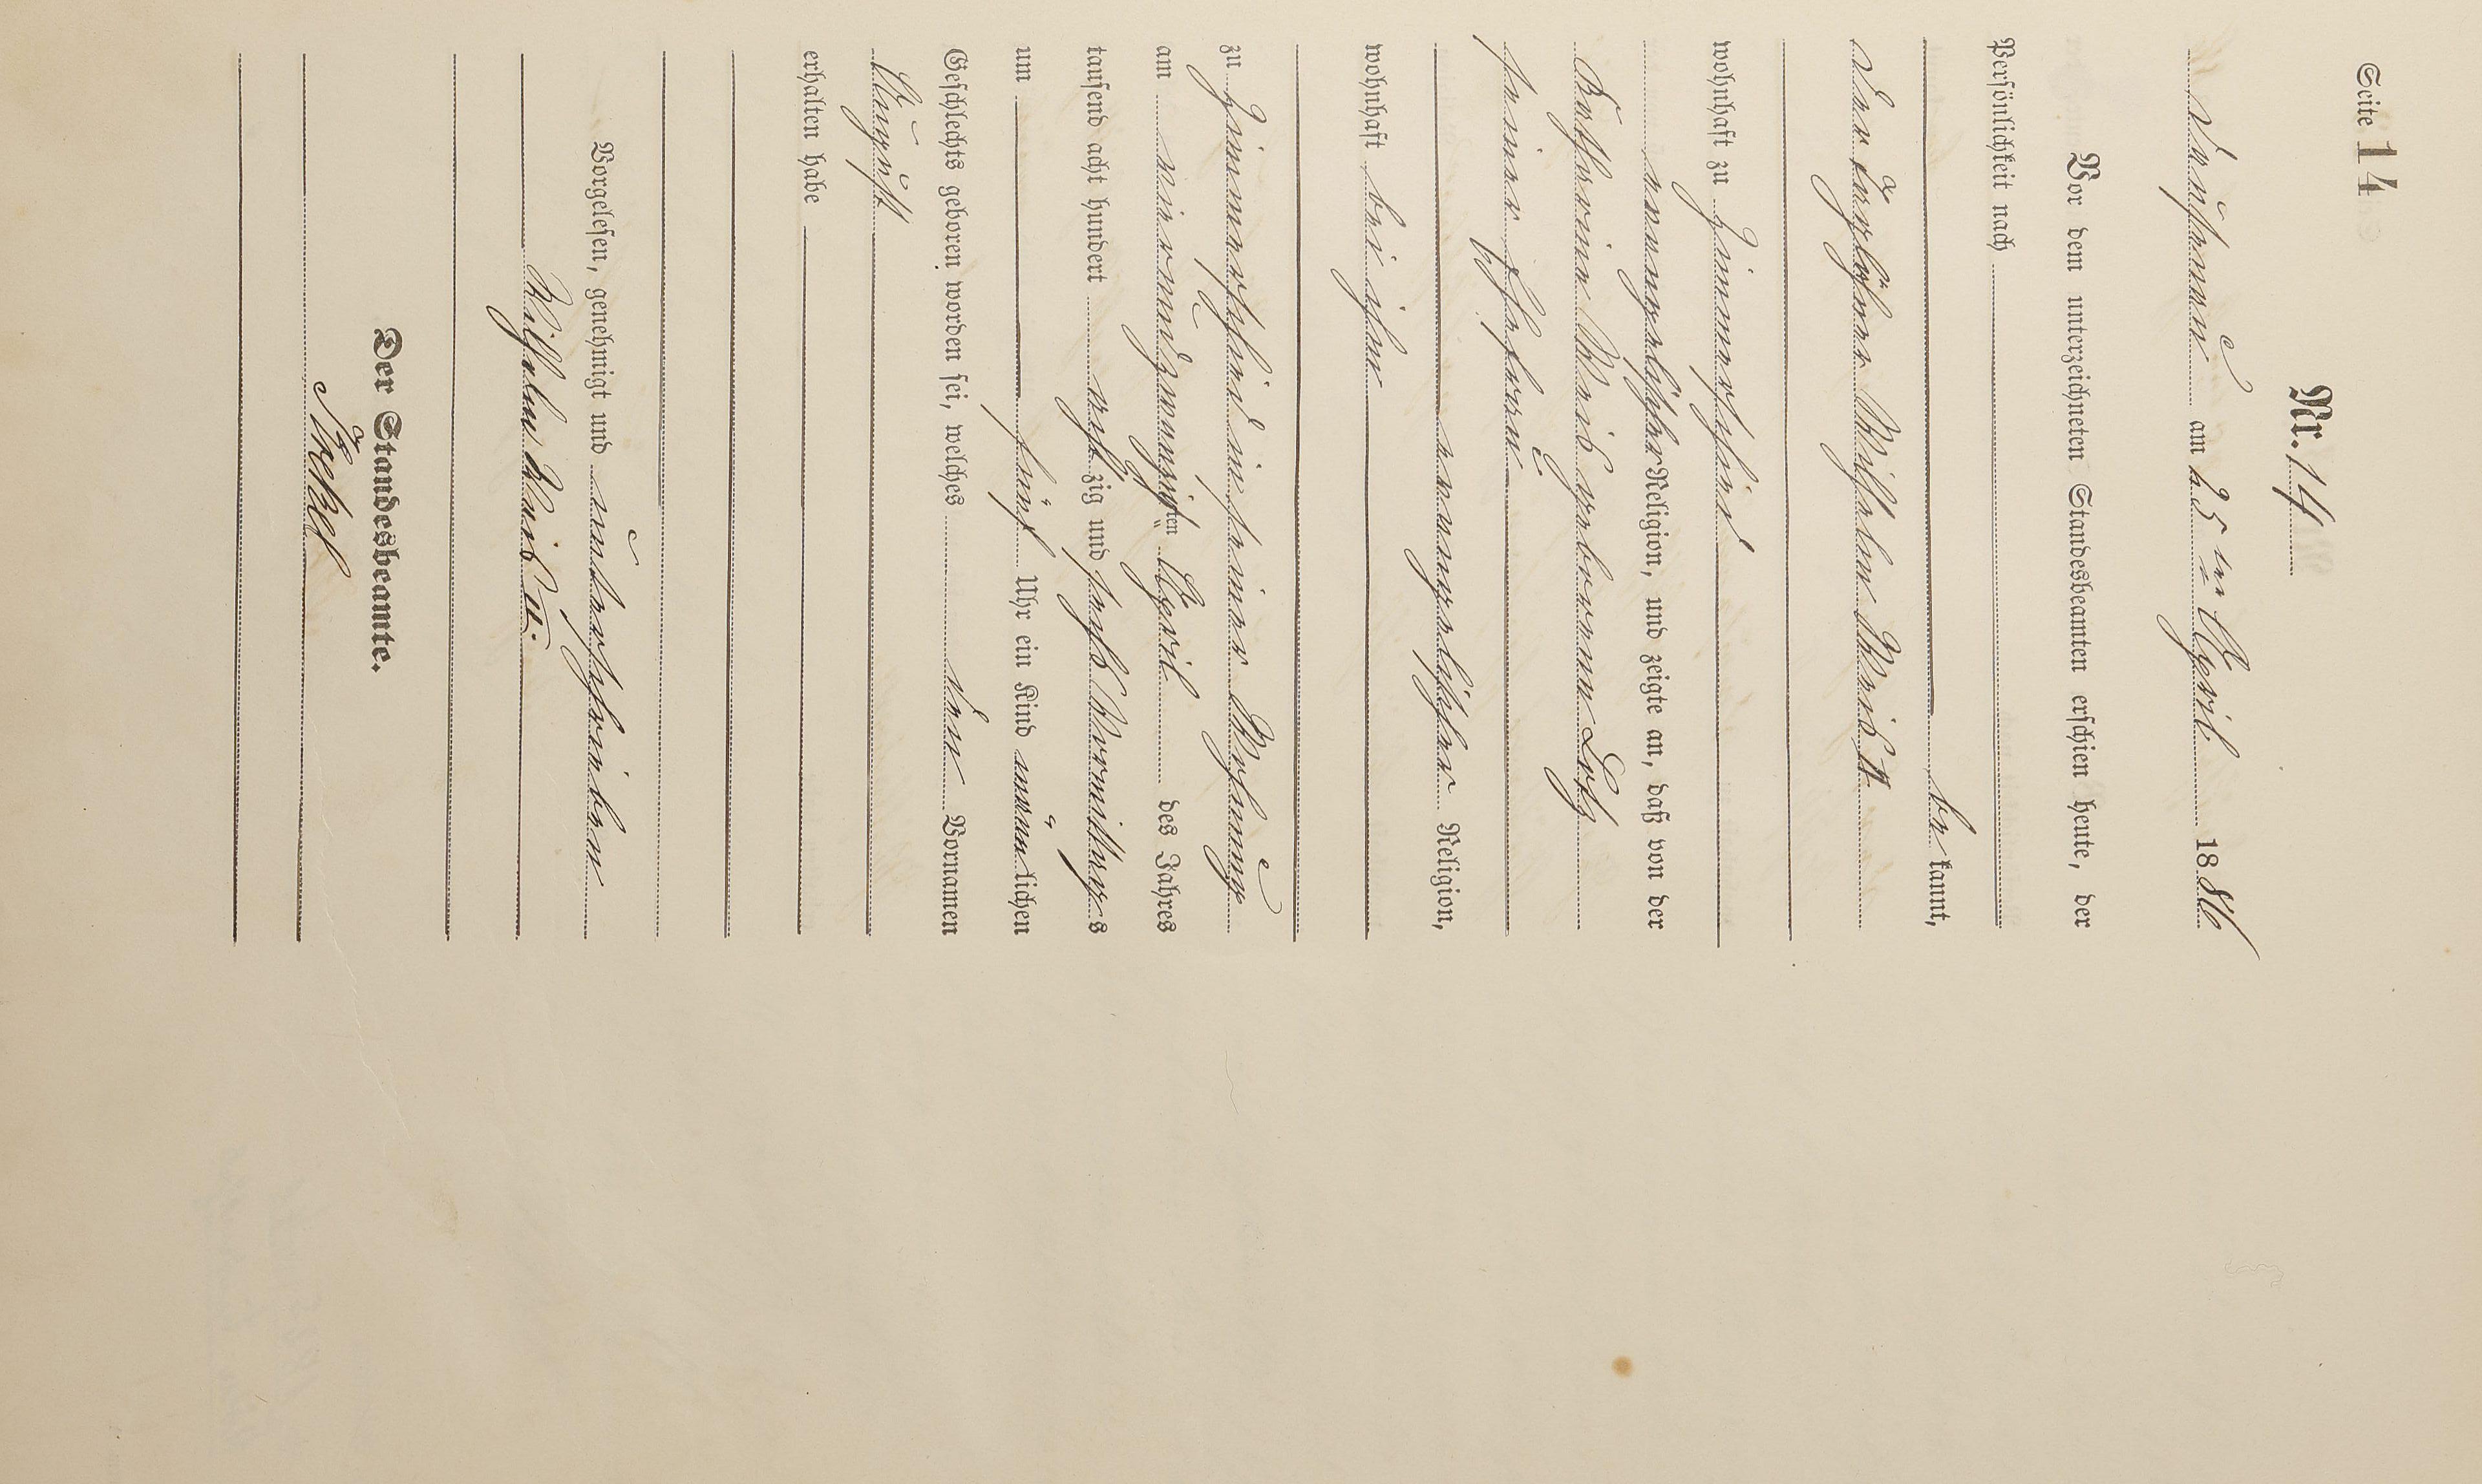 Seite 14
Nr. 14
Dausenau am 25ten April 1886
Vor dem unterzeichneten Standesbeamten erschien heute, der
Persönlichkeit nach
be kannt,
der Taglöhner Wilhelm Weiß II
wohnhaft zu Zimmerschied
evangelischer Religion, und zeigte an, daß von der
Katharine Weiß geborenen Lotz
seiner Ehefrau
evangelischer Religion,
wohnhaft bei ihm
zu Zimmerschied in seiner Wohnung
am vierundzwanzigsten April des Jahres
tausend acht hundert acht zig und sechs Vormittags
um fünf Uhr ein Kind männlichen
Geschlechts geboren worden sei, welches den Vornamen
August
erhalten habe
Vorgelesen, genehmigt und unterschrieben
Wilhelm Weiß II.
Der Standesbeamte.